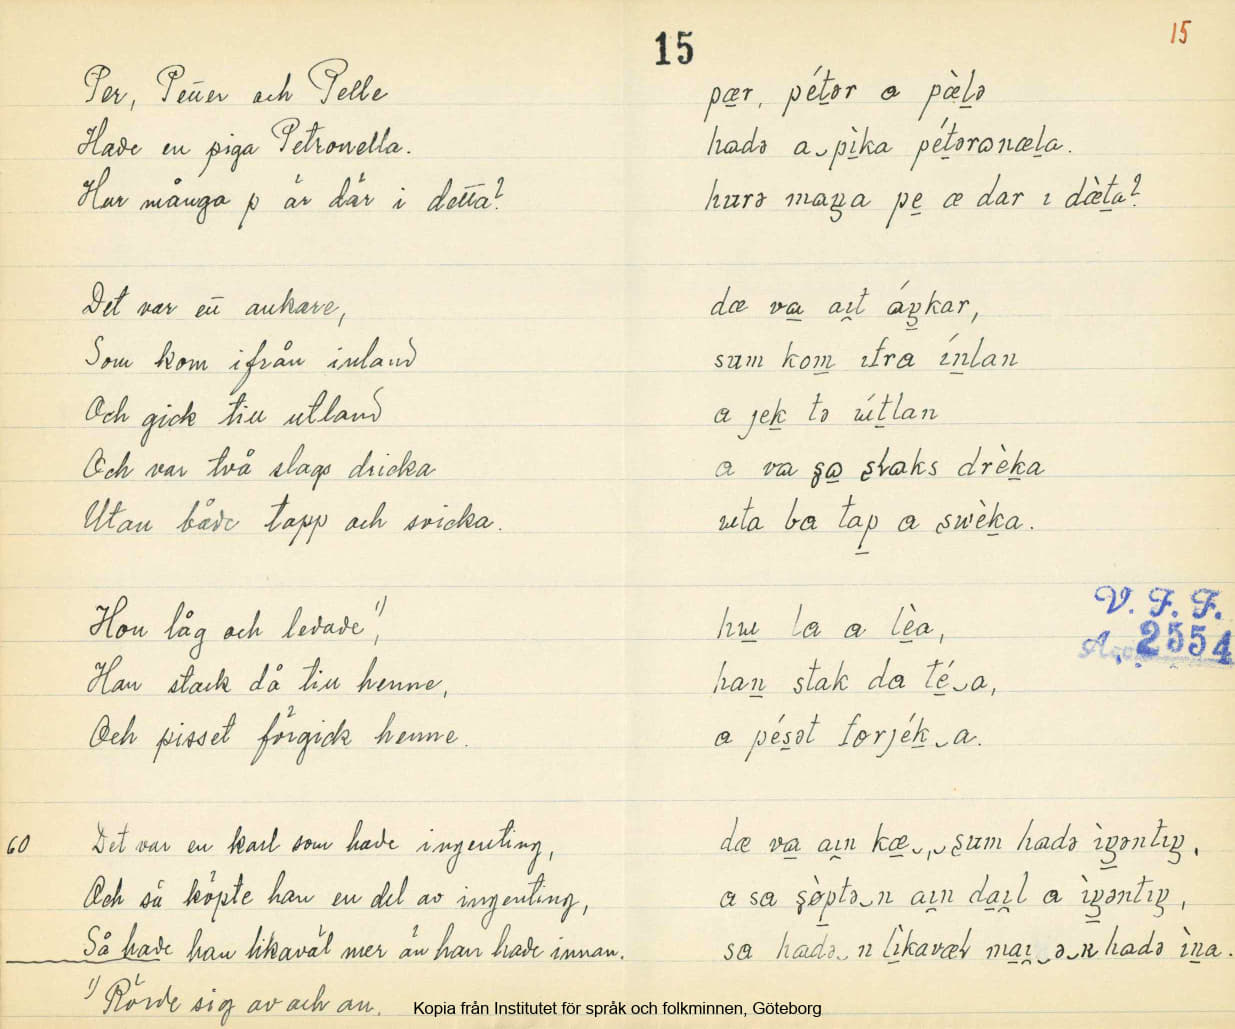 15
15
Per, Petter och Pelle
Hade en piga Petronella.
Hur många p är där i detta?
Det var ett ankare,
Som kom ifrån inland
Och gick till utland
Och var två slags dricka
Utan både tapp och svicka.
Hon låg och ledade¹⁾,
Han stack då till henne,
Och pisset förgick henne.
60 Det var en karl som hade ingenting,
Och så köpte han en del av ingenting,
Så hade han likaväl mer än han hade innan.
¹⁾ Rörde sig av och an.
pær, pétər a pæ̀lə
hadə a‿pìka pétəronæla.
hurə maŋa pe æ dar ı dæ̀ta?
dæ va aıt áŋkar,
sum kom ıfra ínlan
a jek tə útlan
a va şo slaks drèka
uta ba tap a swèka.
hu la a lèa,
han stak da té‿a,
a pésət forjék‿a.
dæ va aın kæ‿,‿sum hadə ìŋəntıŋ,
a sa şòptə‿n aın daıl a ìŋəntıŋ,
sa hadə‿n lìkavæl maı‿ə‿n hadə ìna.
V. F. F.
Acc. 2554
Kopia från Institutet för språk och folkminnen, Göteborg